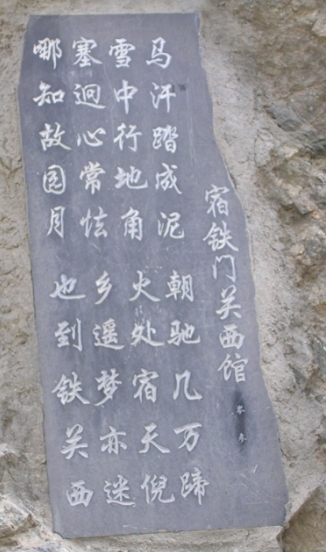 宿铁门关西馆
马汗踏成泥 朝驰几万蹄
雪中行地角 火处宿天倪
塞迥心常怯 乡遥梦亦迷
哪知故园月 也到铁关西